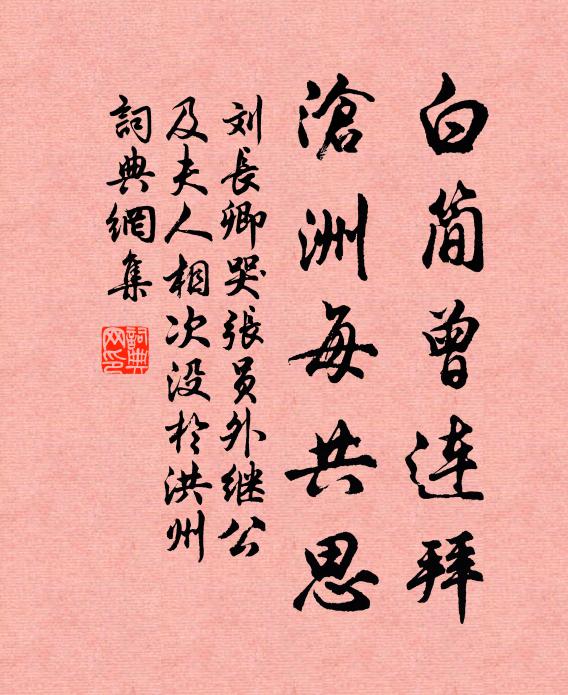 白简曾连拜
滄洲每共思
刘長卿哭張员外继公
及夫人相次没於洪州
詞典網集
詞典
网印